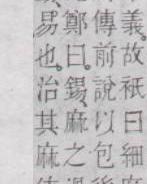 義。故祇曰細
傳前說以包
鄭曰。錫、麻之
易也。治其麻